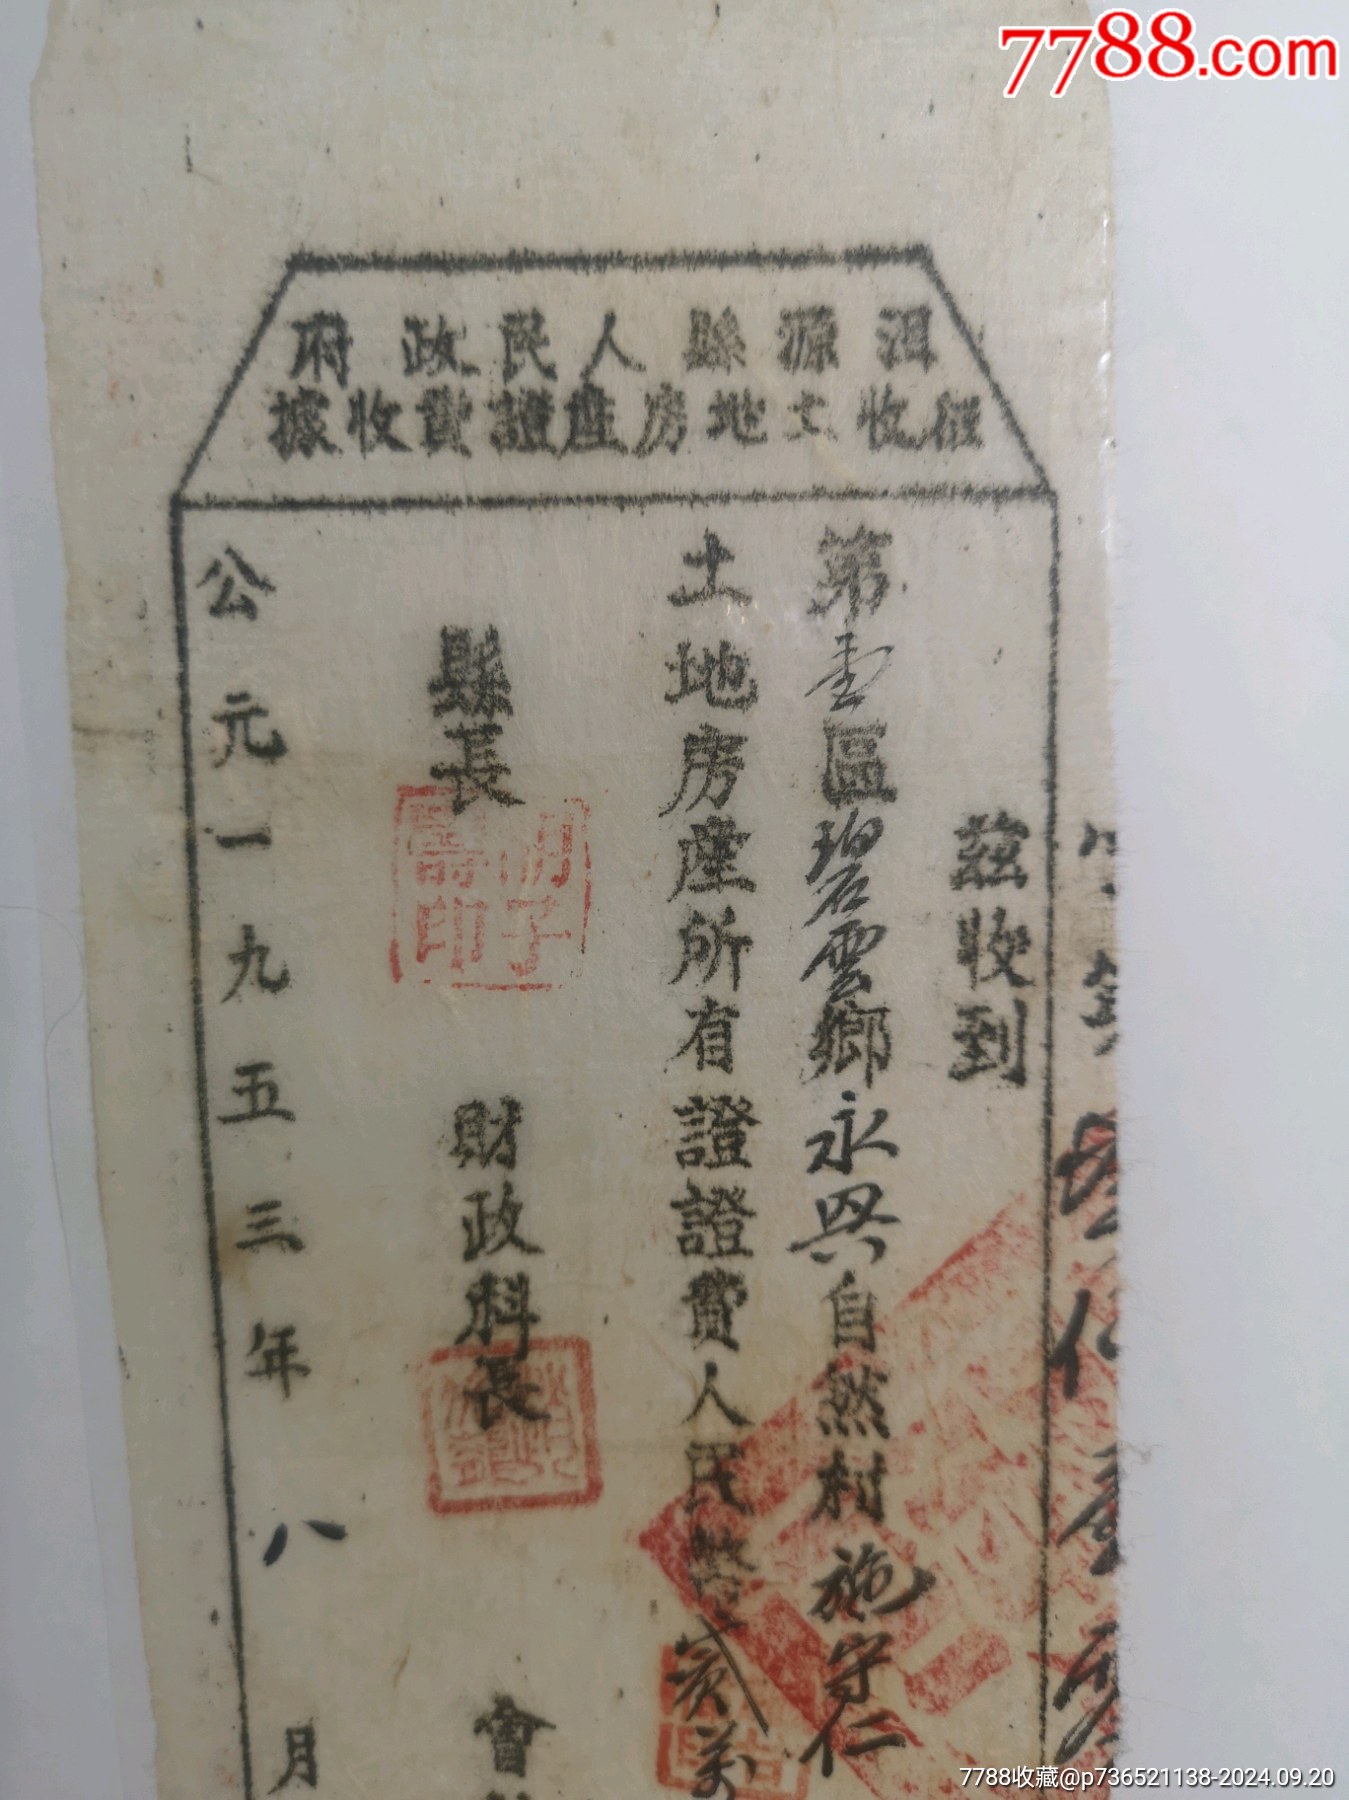 7788.com
洱源縣人民政府
征收土地房產證費收據
茲收到
第壹區碧雲鄉永興自然村施守仁
土地房產所有證證費人民幣 貳萬
縣長
胡子壽印
財政科長
會
公元一九五三年八月
7788收藏@p736521138-2024.09.20